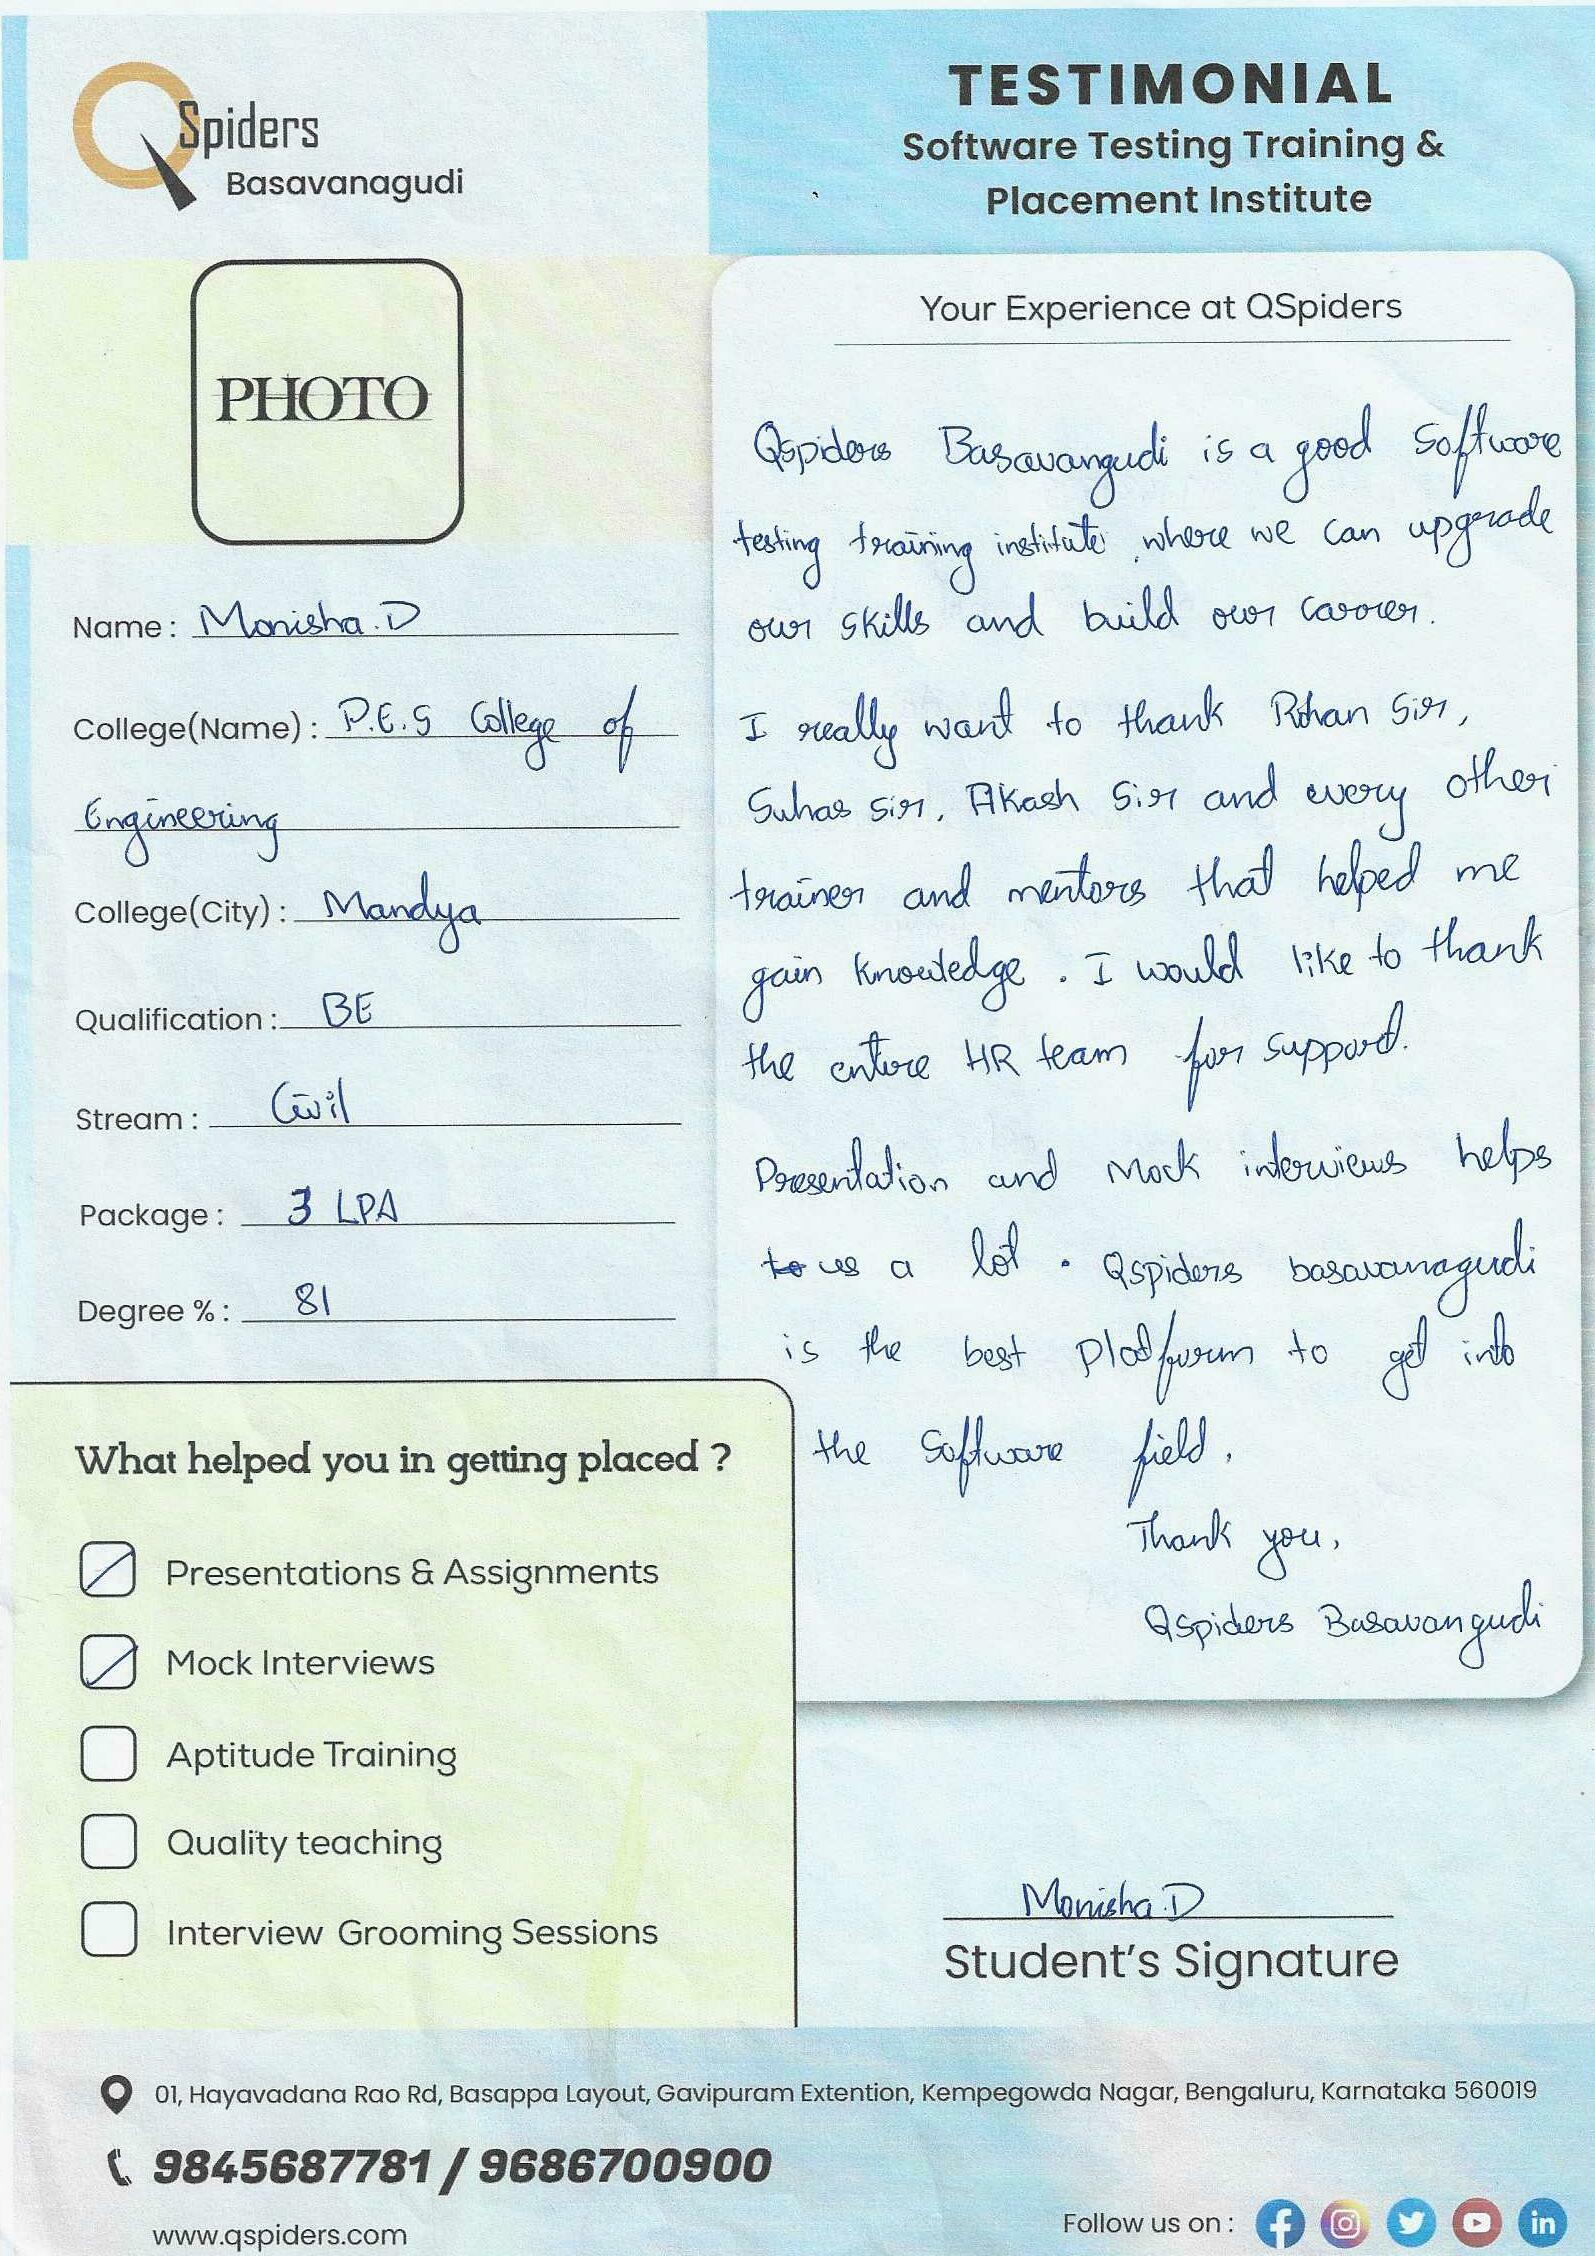 QSpiders
Basavanagudi
TESTIMONIAL
Software Testing Training &
Placement Institute
PHOTO
Name : Monisha.D
College(Name) : P.E.S College of
Engineering
College(City) : Mandya
Qualification : BE
Stream : Civil
Package : 3 LPA
Degree % : 81
Your Experience at QSpiders
Qspiders Basavangudi is a good Software
testing training institute where we can upgrade
our skills and build our carrer.
I really want to thank Rohan Sir,
Suhas sir, Akash Sir and every other
trainer and mentors that helped me
gain knowledge. I would like to thank
the entire HR team for support.
Presentation and Mock interviews helps
to us a lot. Qspiders basavanagudi
is the best Platform to get into
the Software field.
Thank you,
Qspiders Basavangudi
What helped you in getting placed ?
Presentations & Assignments
Mock Interviews
Aptitude Training
Quality teaching
Interview Grooming Sessions
Monisha.D
Student's Signature
01, Hayavadana Rao Rd, Basappa Layout, Gavipuram Extention, Kempegowda Nagar, Bengaluru, Karnataka 560019
9845687781 / 9686700900
www.qspiders.com
Follow us on :